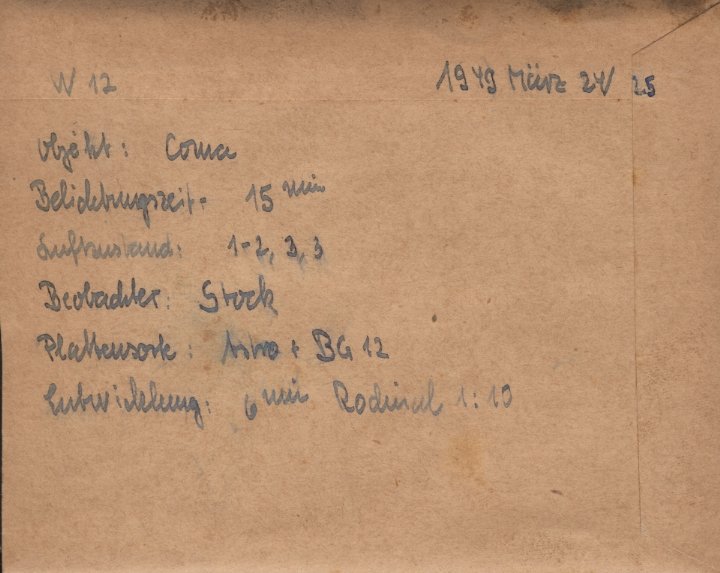 W 12 1949 März 24/25
Objekt: Coma
Belichtungszeit: 15 min
Luftzustand: 1-2, 3, 3
Beobachter: Stock
Plattensorte: Astro + BG 12
Entwicklung: 6 min Rodinal 1:10